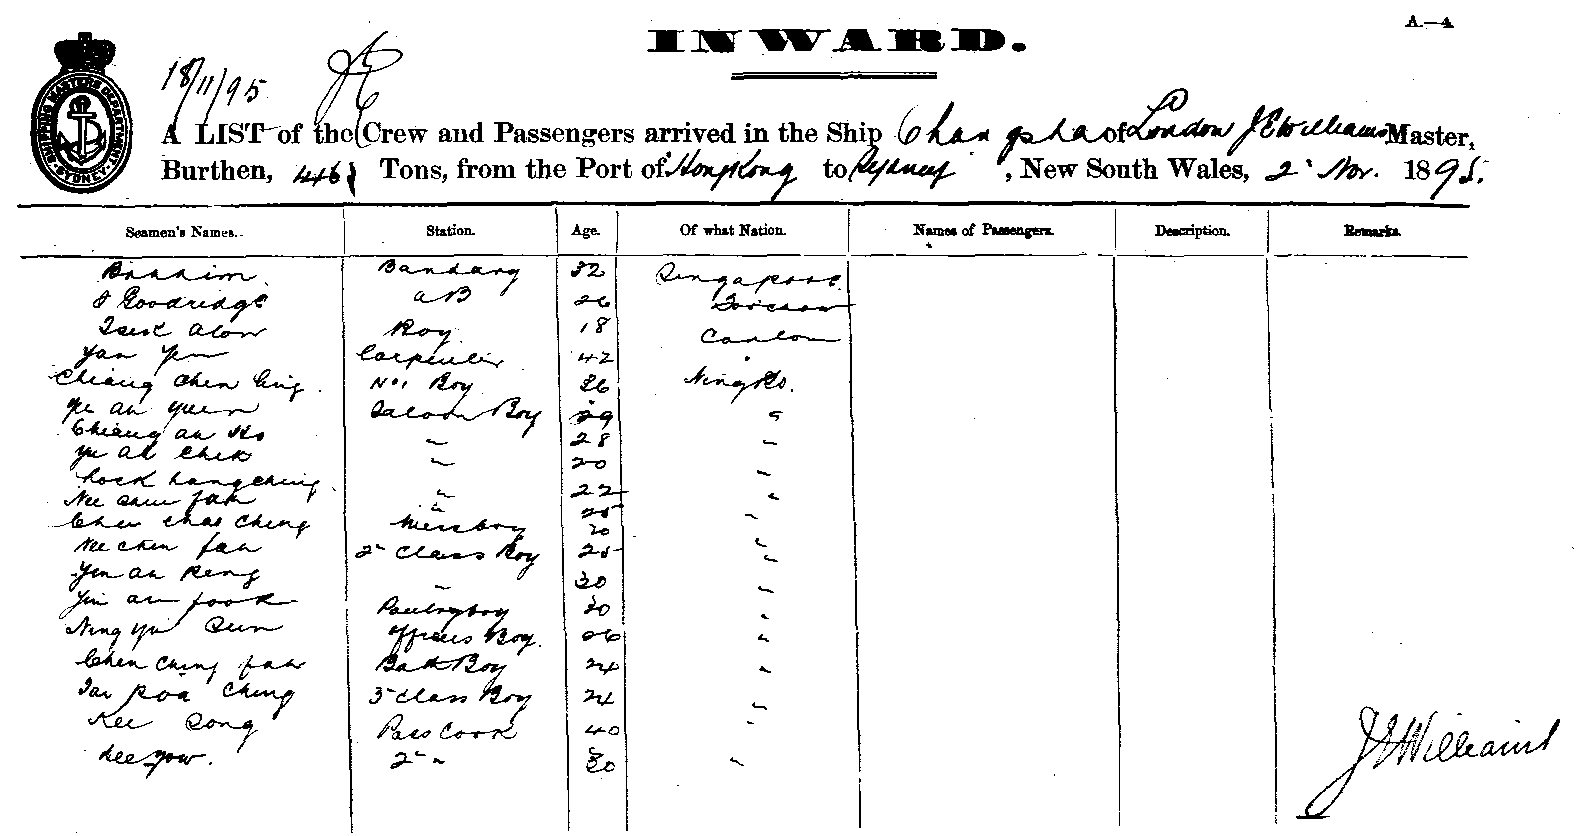 A.—4
INWARD.
18/11/95
SHIPPING MASTERS DEPARTMENT
SYDNEY
A LIST of the Crew and Passengers arrived in the Ship Changsha of London J E Williams Master,
Burthen, Tons, from the Port of HongKong to Sydney, New South Wales, 2 Nov. 1895.
Seamen's Names. Station. Age. Of what Nation. Names of Passengers. Description. Remarks.
Brahim Bandary 32 Singapore.
Goodridge AB 26
Boy 18 Canton
Yan Carpenter 42 "
Chiang Chen No 1 Boy 36 Ningpo.
Ye Ah Yuen Saloon Boy 29 "
Chiang Ah Ko " 28 "
Yu Ah Chek " 20 "
" 22 "
Nee Chen Fah " 25 "
Chen Chas Ching Messboy 20 "
Nee Chen Fah 2 Class Boy 25 "
Yen Ah Reng " 30 "
Yin Ah Fook Pantryboy 20 "
Ning Yu Sun Officers Boy. 26 "
Chen Ching Fah Bath Boy 24 "
Ching 3 Class Boy 24 "
Kee Song Pass Cook 40 "
Lee Yow. 2 " 30 "
J E Williams